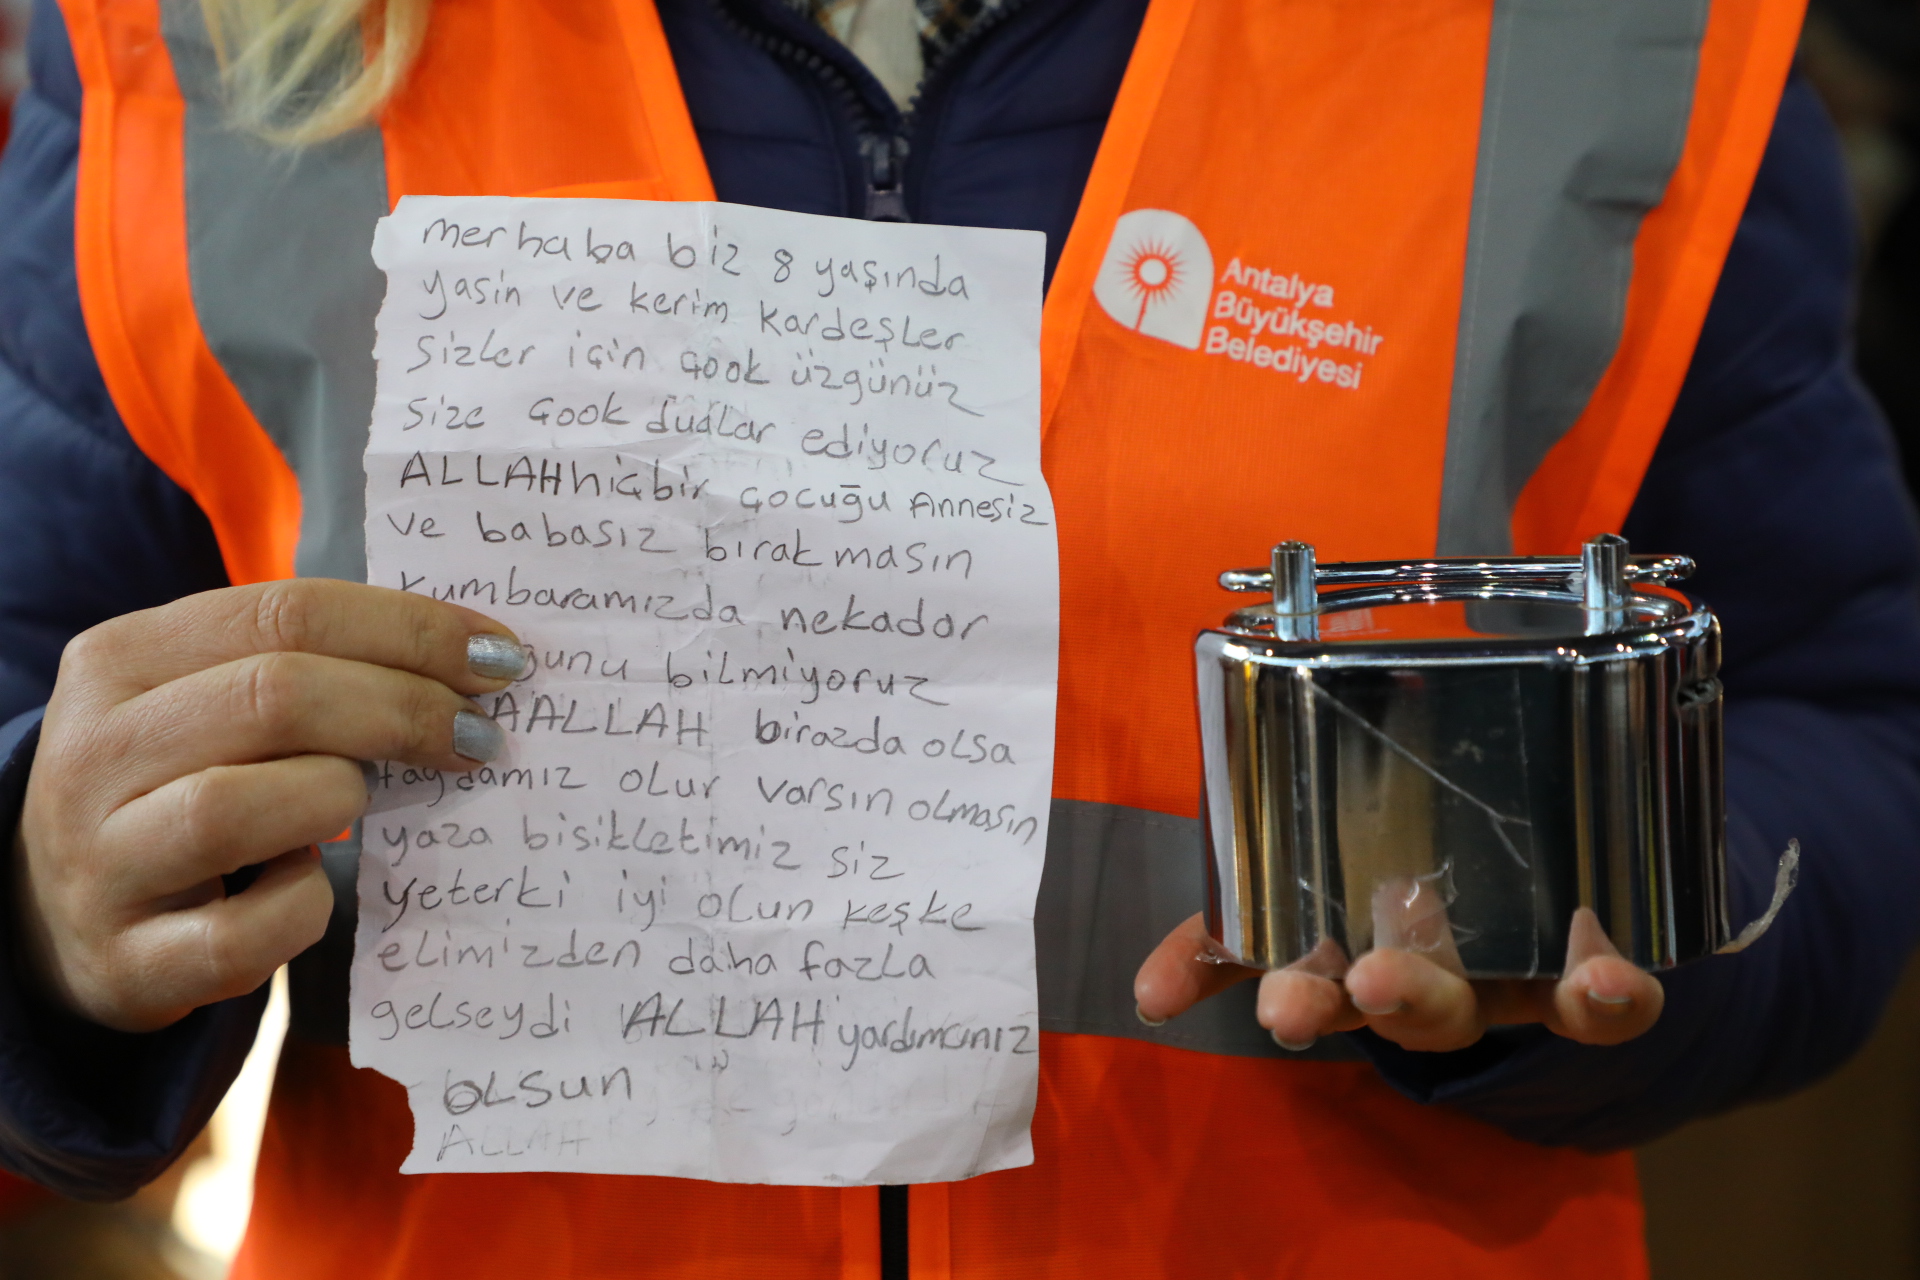 merhaba biz 8 yaşında
yasin ve kerim kardeşler
sizler için çook üzgünüz
size çook dualar ediyoruz
ALLAH hiçbir çocuğu Annesiz
ve babasız bırakmasın
kumbaramızda nekadar
ğunu bilmiyoruz
AALLAH birazda olsa
faydamız olur varsın olmasın
yaza bisikletimiz siz
yeterki iyi olun keşke
elimizden daha fazla
gelseydi ALLAH yardımcınız
olsun
ALLAH
Antalya
Büyükşehir
Belediyesi